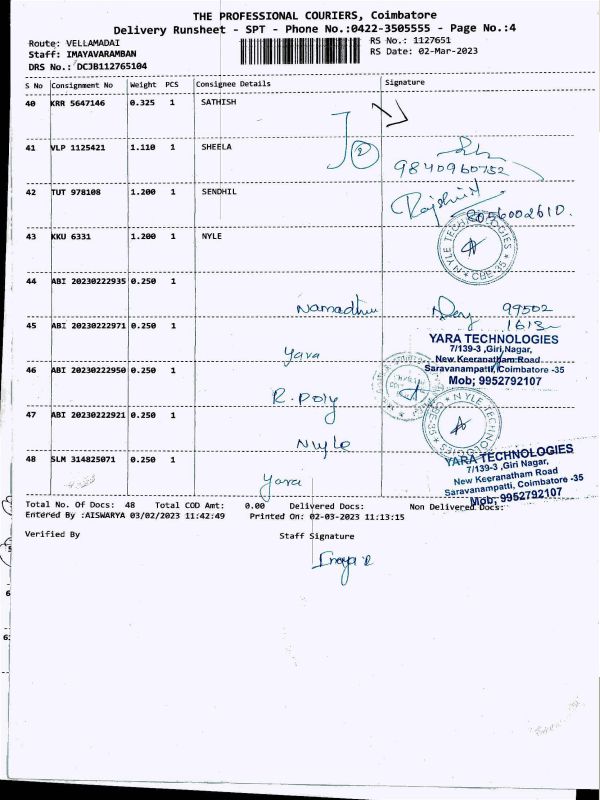 THE PROFESSIONAL COURIERS, Coimbatore
Delivery Runsheet - SPT - Phone No.:0422-3505555 - Page No.:4
Route: VELLAMADAI RS No.: 1127651
Staff: IMAYAVARAMBAN RS Date: 02-Mar-2023
DRS No.: DCJB112765104
S No Consignment No Weight PCS Consignee Details Signature
40 KRR 5647146 0.325 1 SATHISH
41 VLP 1125421 1.110 1 SHEELA
2
9840960752
42 TUT 978108 1.200 1 SENDHIL
8056002610.
43 KKU 6331 1.200 1 NYLE
NYLE TECHNOLOGIES CBE-35
44 ABI 20230222935 0.250 1
99502
45 ABI 20230222971 0.250 1
YARA TECHNOLOGIES
7/139-3 ,Giri Nagar,
New Keeranatham Road
Saravanampatti, Coimbatore -35
Mob; 9952792107
Yara
46 ABI 20230222950 0.250 1
R. Poly
NYLE TECHNOLOGIES CBE-35
47 ABI 20230222921 0.250 1
Nyle
48 SLM 314825071 0.250 1
YARA TECHNOLOGIES
7/139-3 ,Giri Nagar,
New Keeranatham Road
Saravanampatti, Coimbatore -35
Mob; 9952792107
Yara
Total No. Of Docs: 48 Total COD Amt: 0.00 Delivered Docs: Non Delivered Docs:
Entered By :AISWARYA 03/02/2023 11:42:49 Printed On: 02-03-2023 11:13:15
Verified By Staff Signature